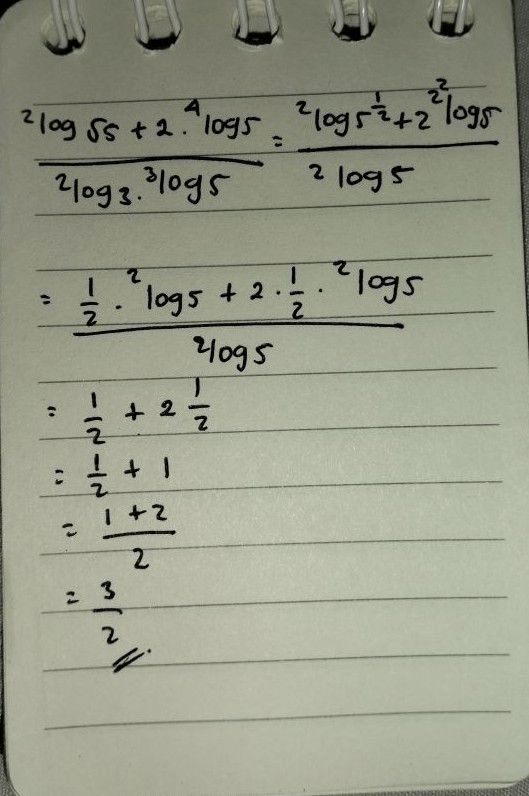 ²log √5 + 2 · ⁴log5 / ²log3 · ³log5 = ²log5^½ + 2^2² log5 / ² log5
= ½ · ²log5 + 2 · ½ · ²log5 / ²log5
= ½ + 2 ½
= ½ + 1
= 1 + 2 / 2
= 3 / 2